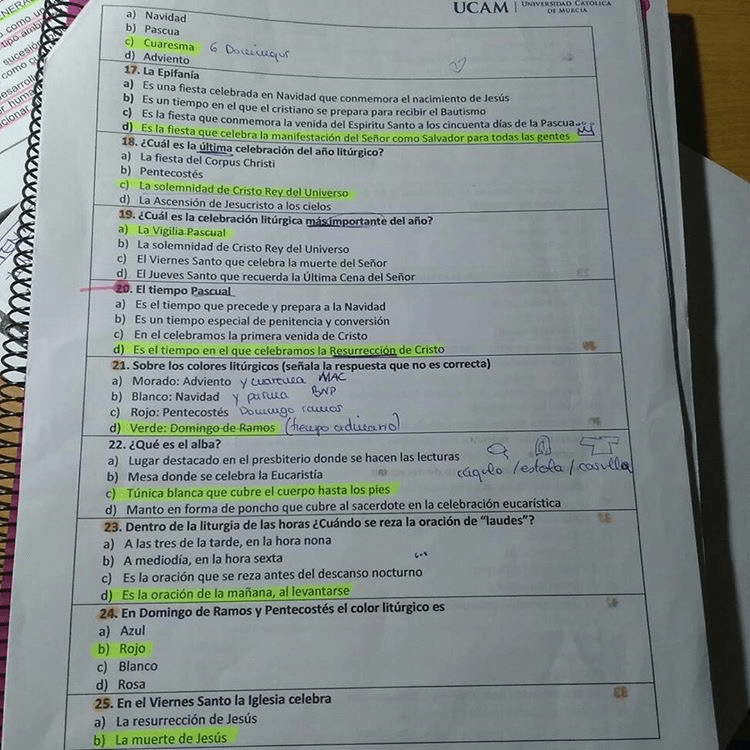 UCAM | UNIVERSIDAD CATÓLICA
DE MURCIA
a) Navidad
b) Pascua
c) Cuaresma 6 Domingos
d) Adviento
17. La Epifanía
a) Es una fiesta celebrada en Navidad que conmemora el nacimiento de Jesús
b) Es un tiempo en el que el cristiano se prepara para recibir el Bautismo
c) Es la fiesta que conmemora la venida del Espiritu Santo a los cincuenta días de la Pascua
d) Es la fiesta que celebra la manifestación del Señor como Salvador para todas las gentes
18. ¿Cuál es la última celebración del año litúrgico?
a) La fiesta del Corpus Christi
b) Pentecostés
c) La solemnidad de Cristo Rey del Universo
d) La Ascensión de Jesucristo a los cielos
19. ¿Cuál es la celebración litúrgica más importante del año?
a) La Vigilia Pascual
b) La solemnidad de Cristo Rey del Universo
c) El Viernes Santo que celebra la muerte del Señor
d) El Jueves Santo que recuerda la Última Cena del Señor
20. El tiempo Pascual
a) Es el tiempo que precede y prepara a la Navidad
b) Es un tiempo especial de penitencia y conversión
c) En el celebramos la primera venida de Cristo
d) Es el tiempo en el que celebramos la Resurrección de Cristo
21. Sobre los colores litúrgicos (señala la respuesta que no es correcta)
a) Morado: Adviento y cuaresma MAC
b) Blanco: Navidad y pascua BNP
c) Rojo: Pentecostés Domingo ramos
d) Verde: Domingo de Ramos (tiempo ordinario)
22. ¿Qué es el alba?
a) Lugar destacado en el presbiterio donde se hacen las lecturas
b) Mesa donde se celebra la Eucaristía cíngulo / estola / casulla
c) Túnica blanca que cubre el cuerpo hasta los pies
d) Manto en forma de poncho que cubre al sacerdote en la celebración eucarística
23. Dentro de la liturgia de las horas ¿Cuándo se reza la oración de “laudes”?
a) A las tres de la tarde, en la hora nona
b) A mediodía, en la hora sexta
c) Es la oración que se reza antes del descanso nocturno
d) Es la oración de la mañana, al levantarse
24. En Domingo de Ramos y Pentecostés el color litúrgico es
a) Azul
b) Rojo
c) Blanco
d) Rosa
25. En el Viernes Santo la Iglesia celebra
a) La resurrección de Jesús
b) La muerte de Jesús